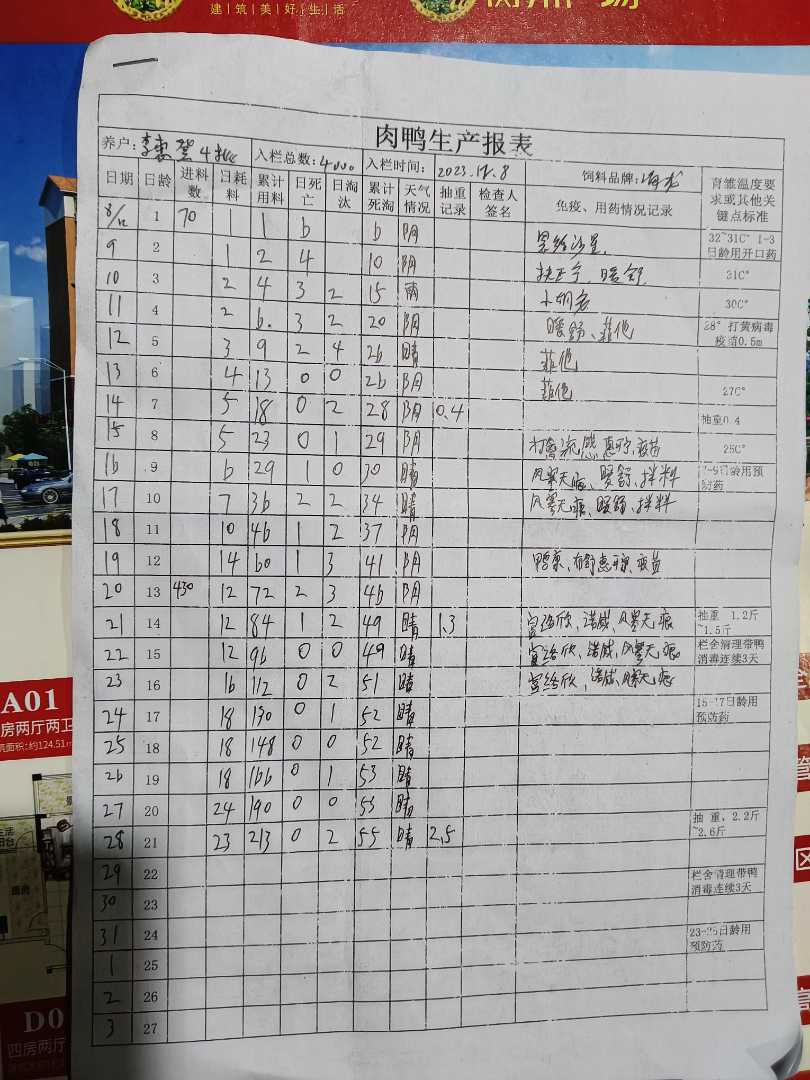 建筑美好生活
肉鸭生产报表
养户: 入栏总数: 4000 入栏时间: 2023.12.8 饲料品牌: 育雏温度要求或其他关键点标准
日期 日龄 进料数 日耗料 累计用料 日死亡 日淘汰 累计死淘 天气情况 抽重记录 检查人签名 免疫、用药情况记录
8/12 1 70 1 1 6 6 阴
9 2 1 2 4 10 阴 32~31C° 1-3日龄用开口药
10 3 2 4 3 2 15 雨 扶正宁、暖舒 31C°
11 4 2 6. 3 2 20 阴 30C°
12 5 3 9 2 4 26 晴 暖舒、菲他 28° 打黄病毒疫苗0.5m
13 6 4 13 0 0 26 阴 菲他
14 7 5 18 0 2 28 阴 0.4 菲他 27C°
15 8 5 23 0 1 29 阴 抽重0.4
16 9 6 29 1 0 30 晴 风寒无痕、暖舒、拌料 25C°
17 10 7 36 2 2 34 晴 风寒无痕、暖舒、拌料 7-9日龄用预防药
18 11 10 46 1 2 37 阴
19 12 14 60 1 3 41 阴
20 13 430 12 72 2 3 46 阴
21 14 12 84 1 2 49 晴 1.3 诺威、风寒无痕 抽重 1.2斤~1.5斤
22 15 12 96 0 0 49 晴 诺威、风寒无痕 栏舍清理带鸭消毒连续3天
23 16 16 112 0 2 51 晴 诺威、风寒无痕
24 17 18 130 0 1 52 晴 15-17日龄用预防药
25 18 18 148 0 0 52 晴
26 19 18 166 0 1 53 晴
27 20 24 190 0 0 53 晴
28 21 23 213 0 2 55 晴 2.5 抽重,2.2斤~2.6斤
29 22 栏舍清理带鸭消毒连续3天
30 23
31 24 23-25日龄用预防药
1 25
2 26
3 27
A01
房两厅两卫
筑面积:约124.51m
D0
四房两厅